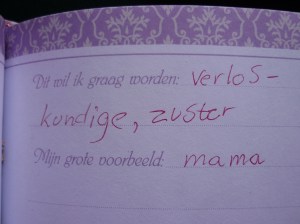 Dit wil ik graag worden: verlos-
kundige, zuster
Mijn grote voorbeeld: mama